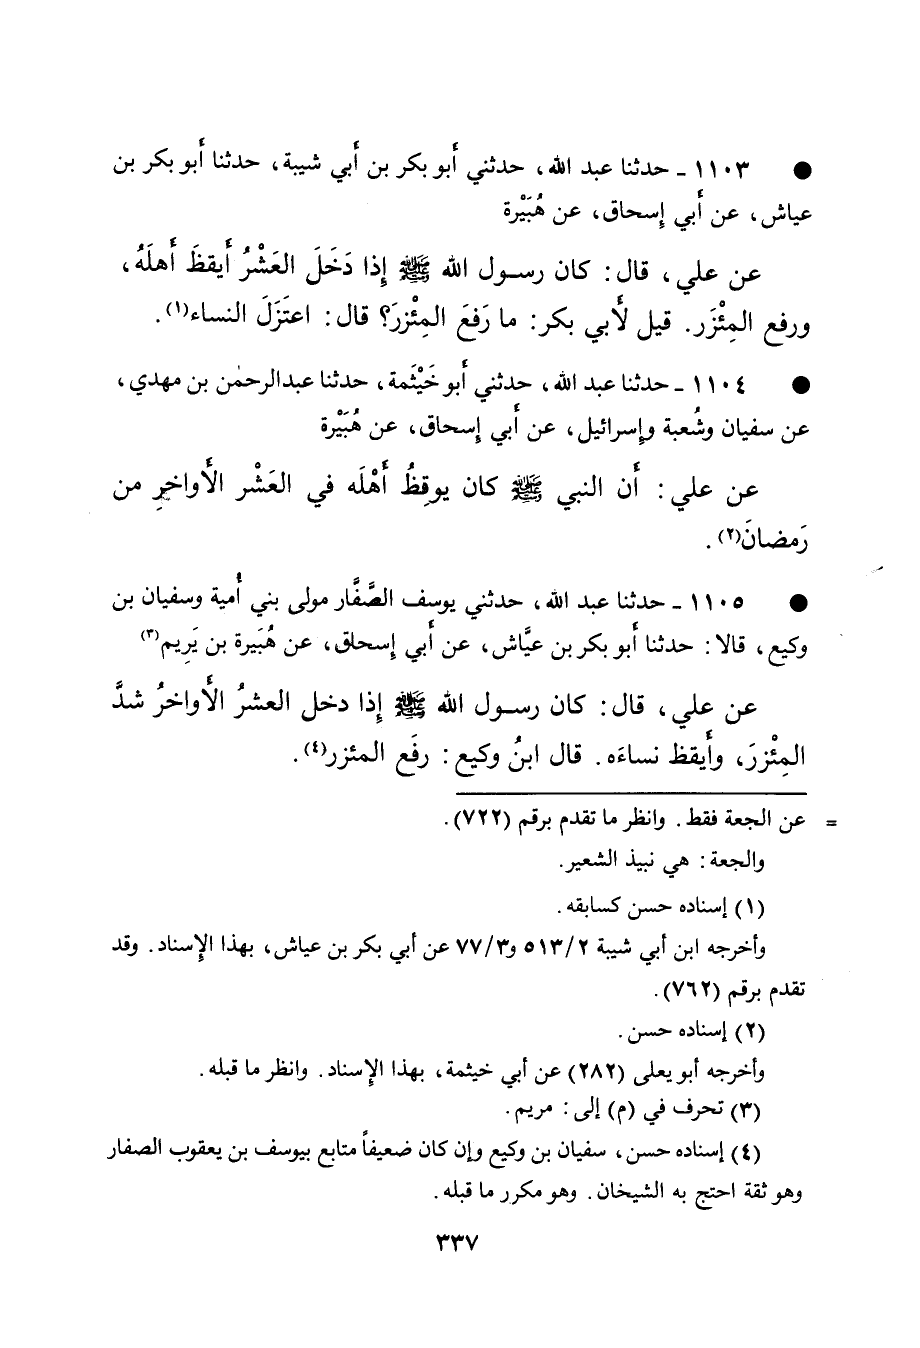 ● ١١٠٣ ـ حدثنا عبد الله، حدثني أَبو بكر بن أَبي شيبة، حدثنا أَبو بكر بن
عياش، عن أَبي إسحاق، عن هُبَيْرة
عن علي، قال: كان رسول الله ﷺ إذا دَخَلَ العَشْرُ أَيقظَ أَهلَهُ،
ورفع المِئْزَر. قيل لأَبي بكر: ما رَفعَ المِئْزرَ؟ قال: اعتَزَلَ النساء(١).
● ١١٠٤ ـ حدثنا عبد الله، حدثني أَبو خَيْثَمة، حدثنا عبدالرحمٰن بن مهدي،
عن سفيان وشُعبة وإسرائيل، عن أَبي إسحاق، عن هُبَيْرة
عن علي: أَن النبي ﷺ كان يوقِظُ أَهْلَه في العَشْر الأَواخرِ من
رَمضانَ(٢).
● ١١٠٥ ـ حدثنا عبد الله، حدثني يوسف الصَّفَّار مولى بني أُمية وسفيان بن
وكيع، قالا: حدثنا أَبو بكر بن عيَّاش، عن أَبي إسحاق، عن هُبَيرة بن يَرِيم(٣)
عن علي، قال: كان رسول الله ﷺ إذا دخل العشرُ الأَواخرُ شدَّ
المِئْزرَ، وأَيقظ نساءَه. قال ابنُ وكيع: رفَع المئزر(٤).
= عن الجعة فقط. وانظر ما تقدم برقم (٧٢٢).
والجعة: هي نبيذ الشعير.
(١) إسناده حسن كسابقه.
وأخرجه ابن أبي شيبة ٥١٣/٢ و٧٧/٣ عن أبي بكر بن عياش، بهذا الإسناد. وقد
تقدم برقم (٧٦٢).
(٢) إسناده حسن.
وأخرجه أبو يعلى (٢٨٢) عن أبي خيثمة، بهذا الإسناد. وانظر ما قبله.
(٣) تحرف في (م) إلى: مريم.
(٤) إسناده حسن، سفيان بن وكيع وإن كان ضعيفاً متابع بيوسف بن يعقوب الصفار
وهو ثقة احتج به الشيخان. وهو مكرر ما قبله.
٣٣٧